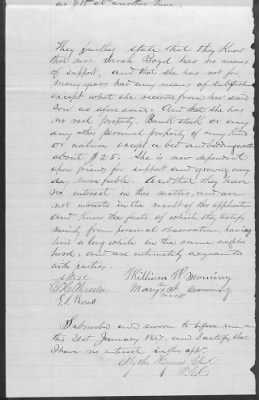 as stated at another time.
They further state that they know
that Mrs. Sarah Boyd has no means
of support, and that she has not for
many years had any means of subsistence
except what she received from her said
son as aforesaid. And that she has
no real property, Bank stock or any
any other personal property of any kind
or nature except a bed and bedding worth
about $25. She is now dependent
upon friends for support and growing every
day more feeble. And that they have
no interest in this matter, and are
not interested in the result of the application
and know the facts of which they testify
mainly from personal observation, having
lived a long while in the same neighbor
hood, and are intimately acquainted
with parties.
Attest
William W Downing
her
Mary J. Downing
mark
Subscribed and sworn to before me on
this 21st January 1867. And I certify that
I have no interest in this app.